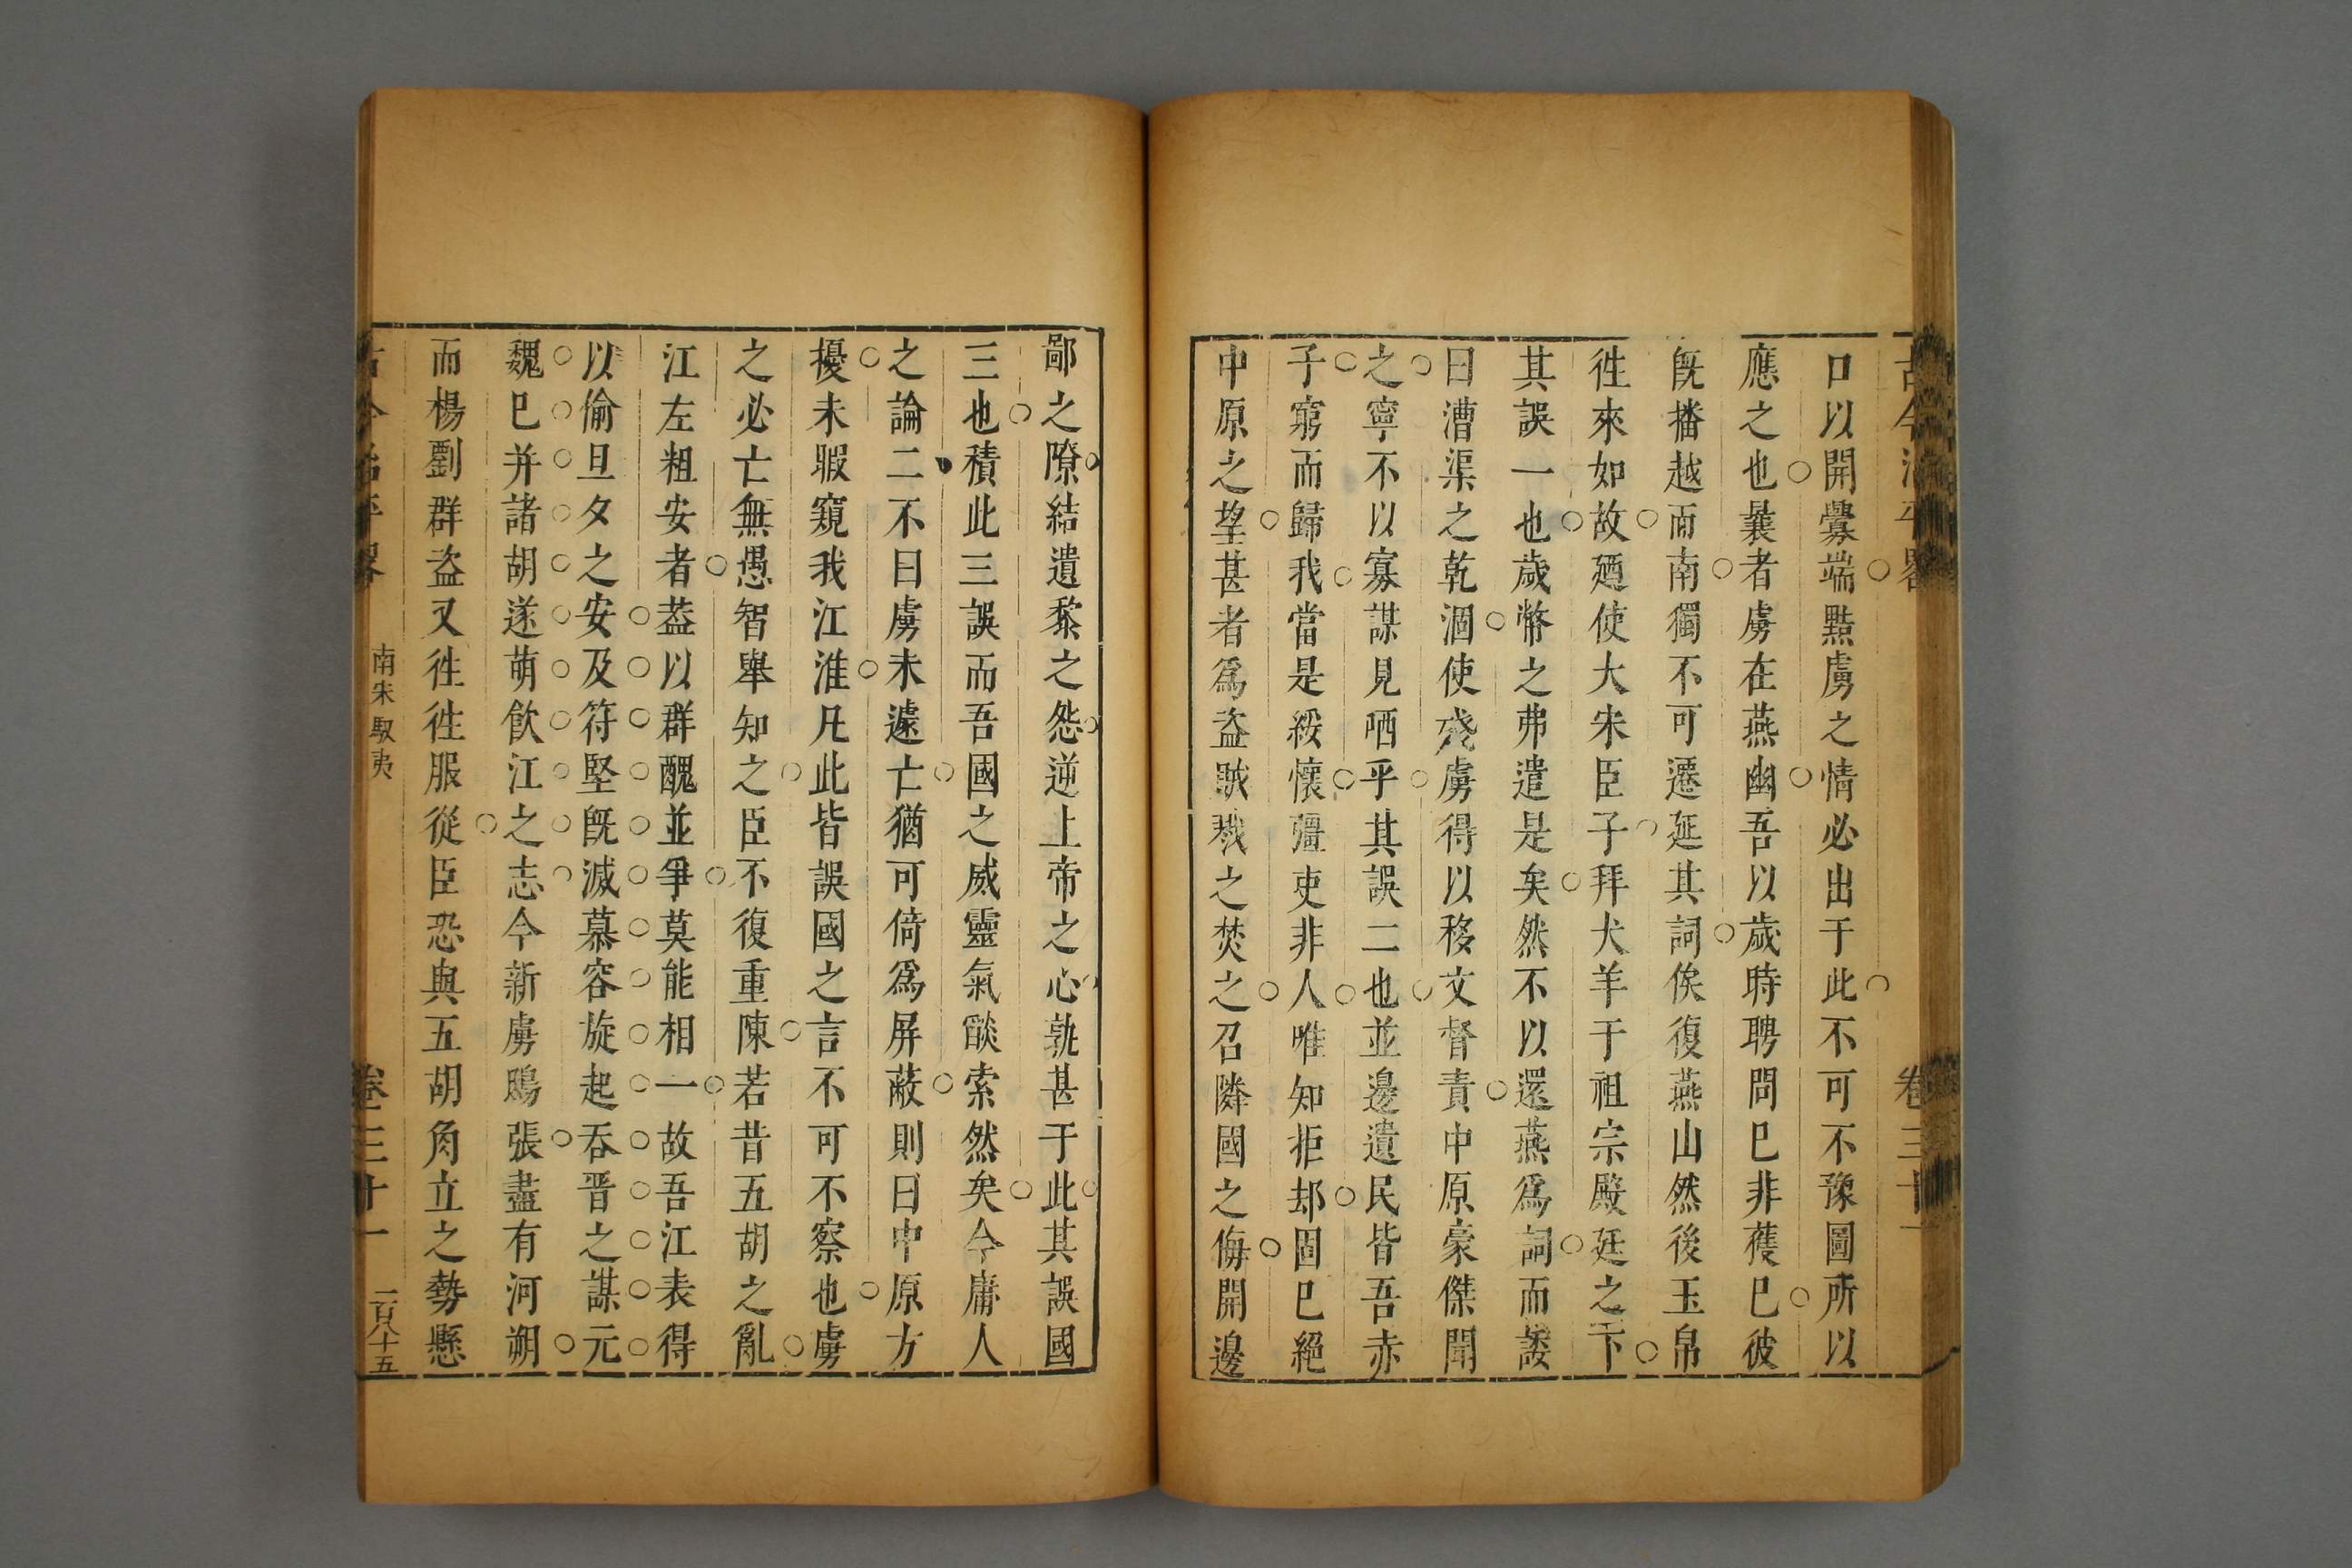 古今治平畧 卷三十一
口以開釁端黠虜之情必出于此不可不豫圖所以
應之也曩者虜在燕幽吾以歲時聘問巳非獲巳彼
旣播越而南獨不可遷延其詞俟復燕山然後玉帛
徃來如故廼使大宋臣子拜犬羊于祖宗殿廷之下
其誤一也歲幣之弗遣是矣然不以還燕爲詞而諉
曰漕渠之乾涸使殘虜得以移文督責中原豪傑聞
之寧不以寡謀見哂乎其誤二也並邊遺民皆吾赤
子窮而歸我當是綏懷彊吏非人唯知拒却固巳絕
中原之望甚者爲盜賊戕之焚之召隣國之侮開邊
鄙之隙結遺黎之怨逆上帝之心孰甚于此其誤國
三也積此三誤而吾國之威靈氣燄索然矣今庸人
之論二不曰虜未遽亡猶可倚爲屏蔽則曰中原方
擾未暇窺我江淮凡此皆誤國之言不可不察也虜
之必亡無愚智舉知之臣不復重陳若昔五胡之亂
江左粗安者葢以群醜並爭莫能相一故吾江表得
以偷旦夕之安及符堅旣滅慕容旋起吞晋之謀元
魏巳并諸胡遂萌飲江之志今新虜鴟張盡有河朔
而楊劉群盜又徃徃服從臣恐與五胡角立之勢懸
古今治平畧 南宋馭夷 卷三十一 一百八十五